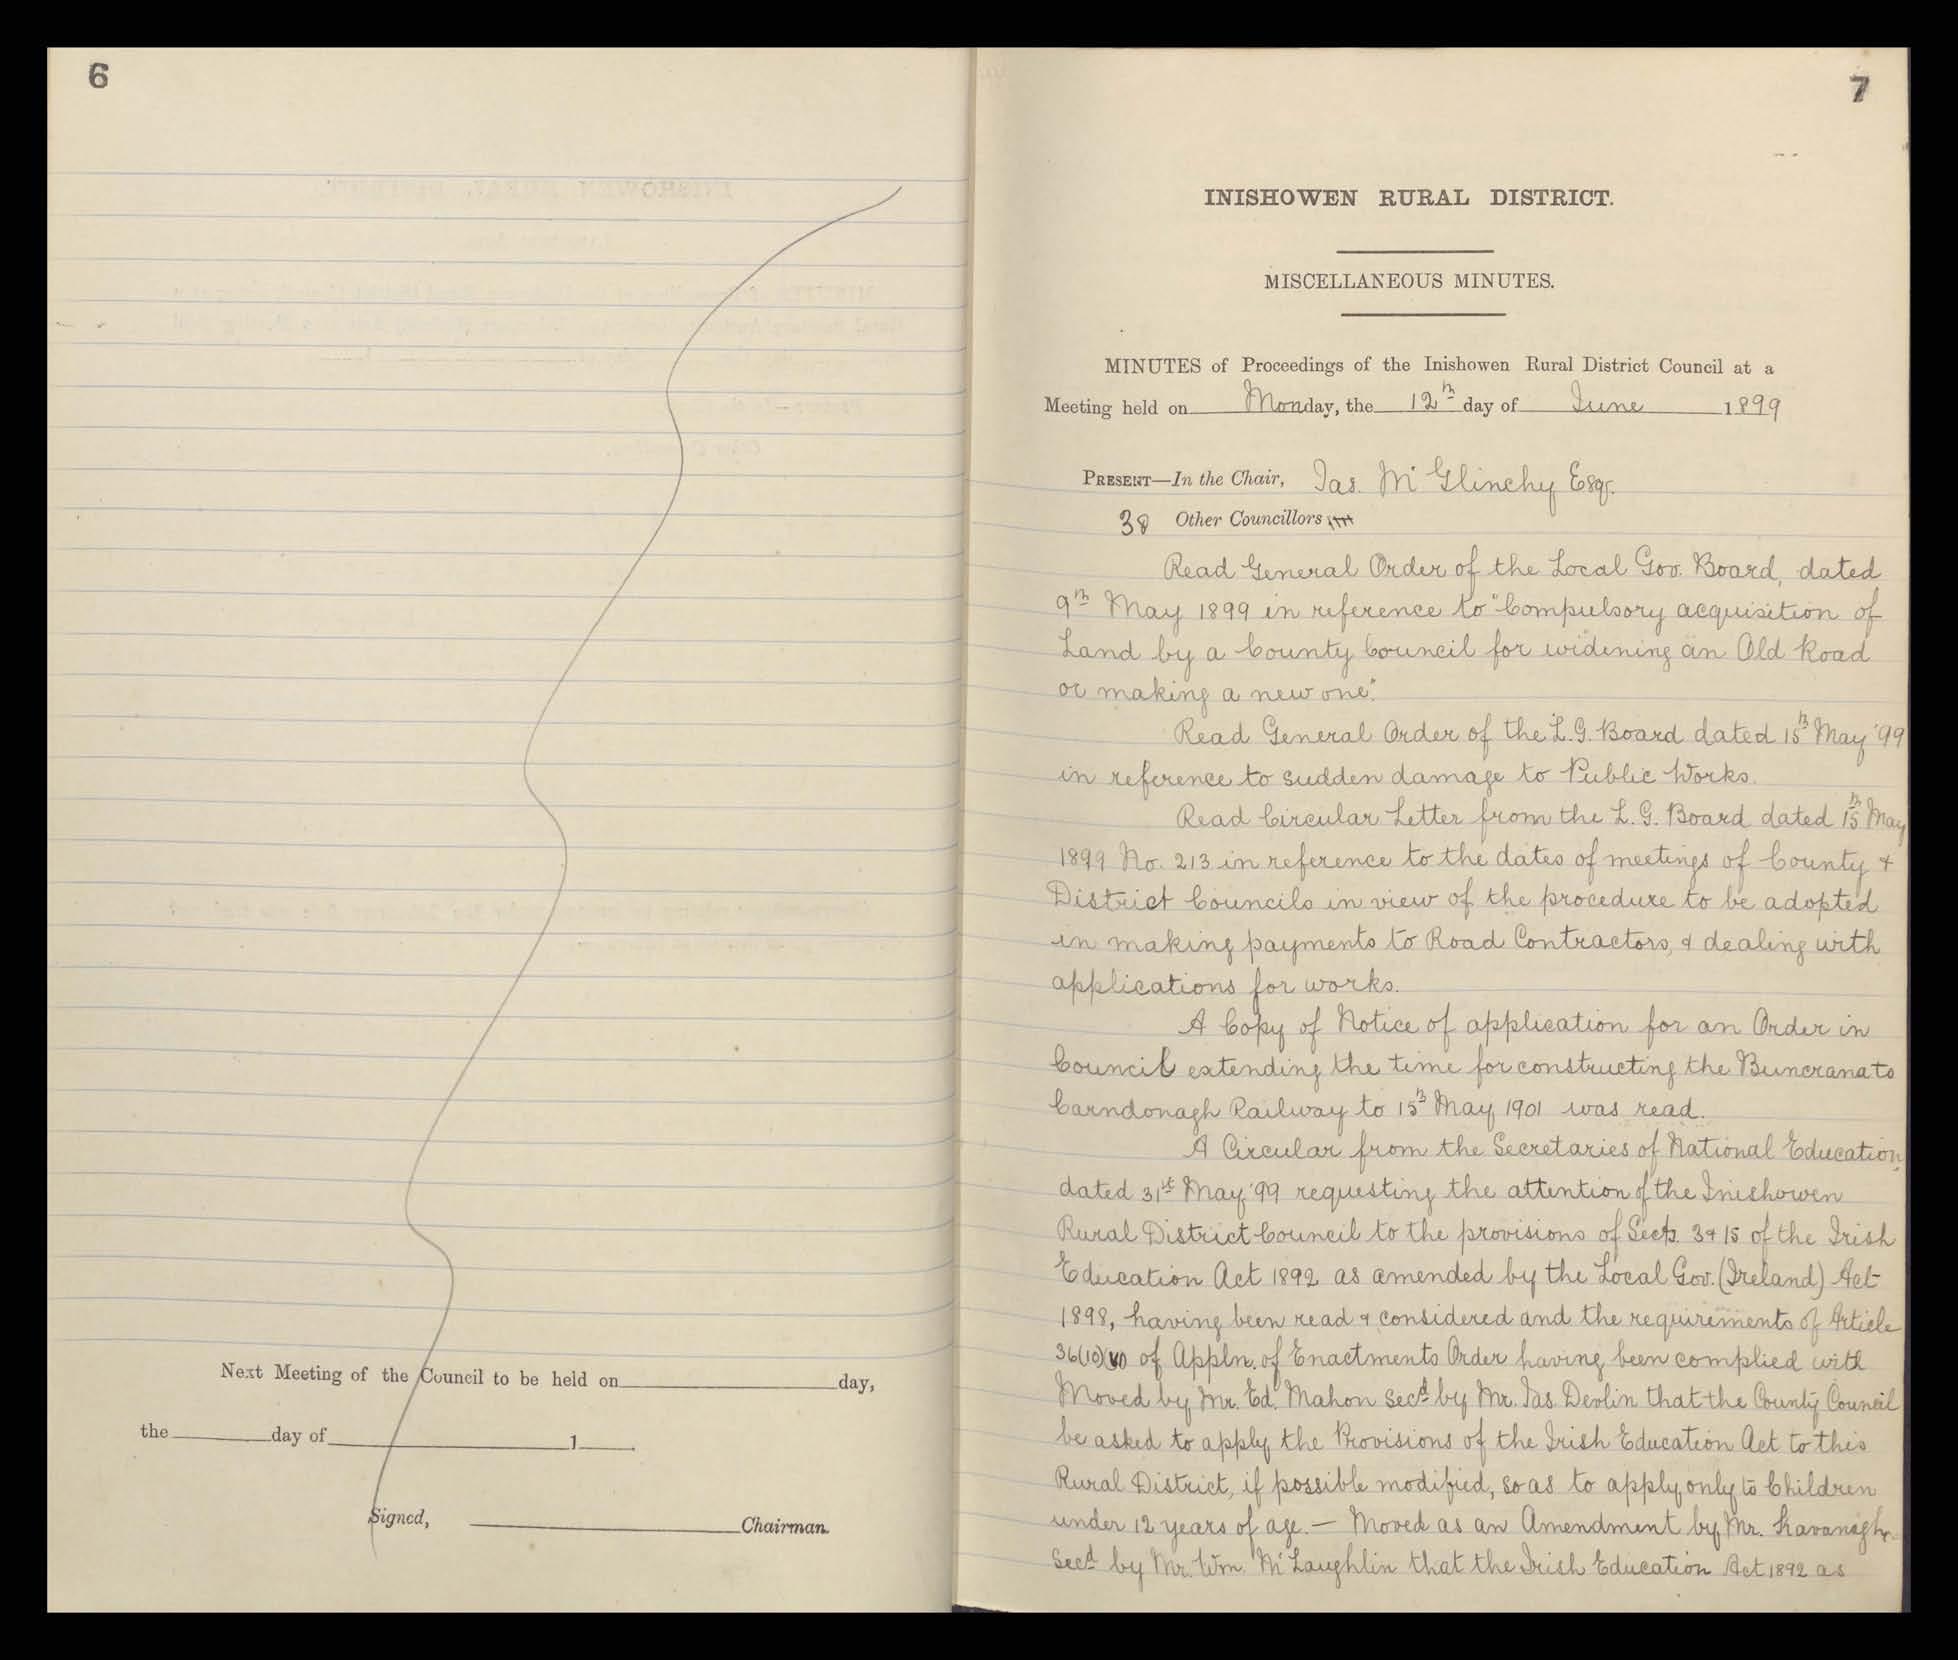 6
Next Meeting of the Council to be held on day,
the day of 1 .
Signed, Chairman.
7
INISHOWEN RURAL DISTRICT.
MISCELLANEOUS MINUTES.
MINUTES of Proceedings of the Inishowen Rural District Council at a
Meeting held on Monday, the 12th day of June 1899
PRESENT—In the Chair, Jas. McGlinchy Esqr.
38 Other Councillors
Read General Order of the Local Gov. Board, dated
9th May 1899 in reference to "Compulsory acquisition of
Land by a County Council for widening an Old Road
or making a new one".
Read General Order of the L.G. Board dated 15th May '99
in reference to sudden damage to Public Works.
Read Circular Letter from the L.G. Board dated 15th May
1899 No. 213 in reference to the dates of meetings of County &
District Councils in view of the procedure to be adopted
in making payments to Road Contractors, & dealing with
applications for works.
A Copy of Notice of application for an Order in
Council extending the time for constructing the Buncrana to
Carndonagh Railway to 15th May 1901 was read.
A Circular from the Secretaries of National Education,
dated 31st May '99 requesting the attention of the Inishowen
Rural District Council to the provisions of Sects. 3 & 15 of the Irish
Education Act 1892 as amended by the Local Gov. (Ireland) Act
1898, having been read & considered and the requirements of Article
36(10) of Appln. of Enactments Order having been complied with
Moved by Mr. Ed. Mahon Secd by Mr. Jas. Devlin that the County Council
be asked to apply the Provisions of the Irish Education Act to this
Rural District, if possible modified, so as to apply only to Children
under 12 years of age. — Moved as an Amendment by Mr. Kavanagh
Secd by Mr. Wm. McLaughlin that the Irish Education Act 1892 as